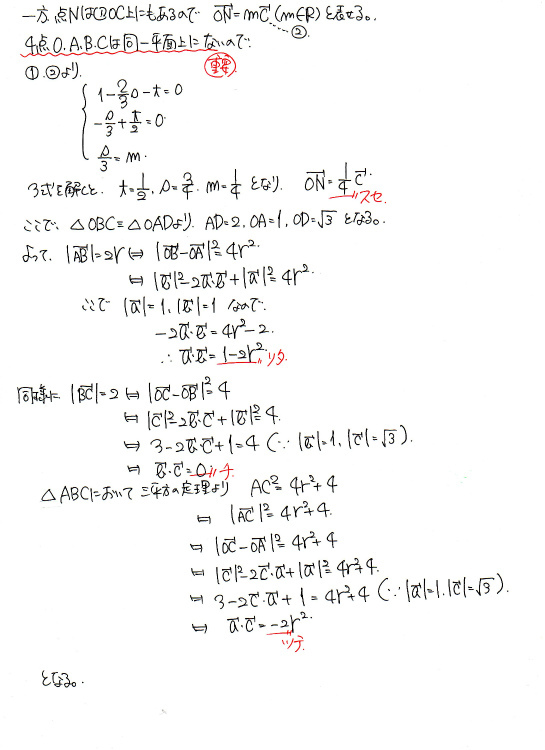 一方、点NはBOC上にもあるので ON→=mc→ (m∈R)と表せる。
②
4点O.A.B.Cは同一平面上にないので
重要
①.②より
1-2/3s-t=0
-s/3+t/2=0
s/3=m.
3式を解くと、t=1/2, s=3/4. m=1/4 となり. ON→=1/4c→.
スセ
ここで、△OBC≡△OADより. AD=2, OA=1, OD=√3 となる。
よって、|AB→|=2r⇔|OB→-OA→|²=4r².
⇔|b→|²-2a→・b→+|a→|²=4r².
ここで |a→|=1, |b→|=1 なので
-2a→・b→=4r²-2.
∴a→・b→=1-2r² ソタ
同様に |BC→|=2⇔|OC→-OB→|²=4
⇔|c→|²-2b→・c→+|b→|²=4.
⇔3-2b→・c→+1=4 (∵|b→|=1, |c→|=√3).
⇔b→・c→=0 チ
△ABCにおいて三平方の定理より AC²=4r²+4
⇔|AC→|²=4r²+4.
⇔|OC→-OA→|²=4r²+4
⇔|c→|²-2c→・a→+|a→|²=4r²+4.
⇔3-2c→・a→+1=4r²+4 (∵|a→|=1.|c→|=√3).
⇔a→・c→=-2r².
ツテ
となる.